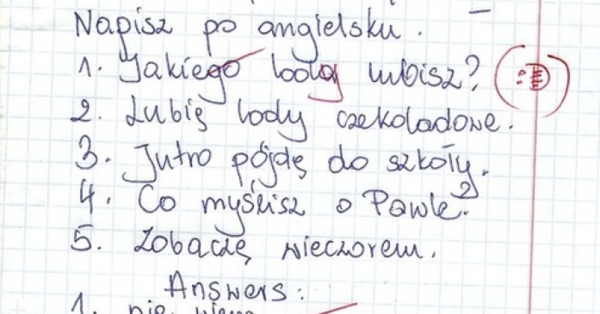 Napisz po angielsku.
1. Jakiego loda lubisz?
2. Lubię lody czekoladowe.
3. Jutro pójdę do szkoły.
4. Co myślisz o Pawle?
5. Zobaczę wieczorem.
Answers:
1. nie wiem